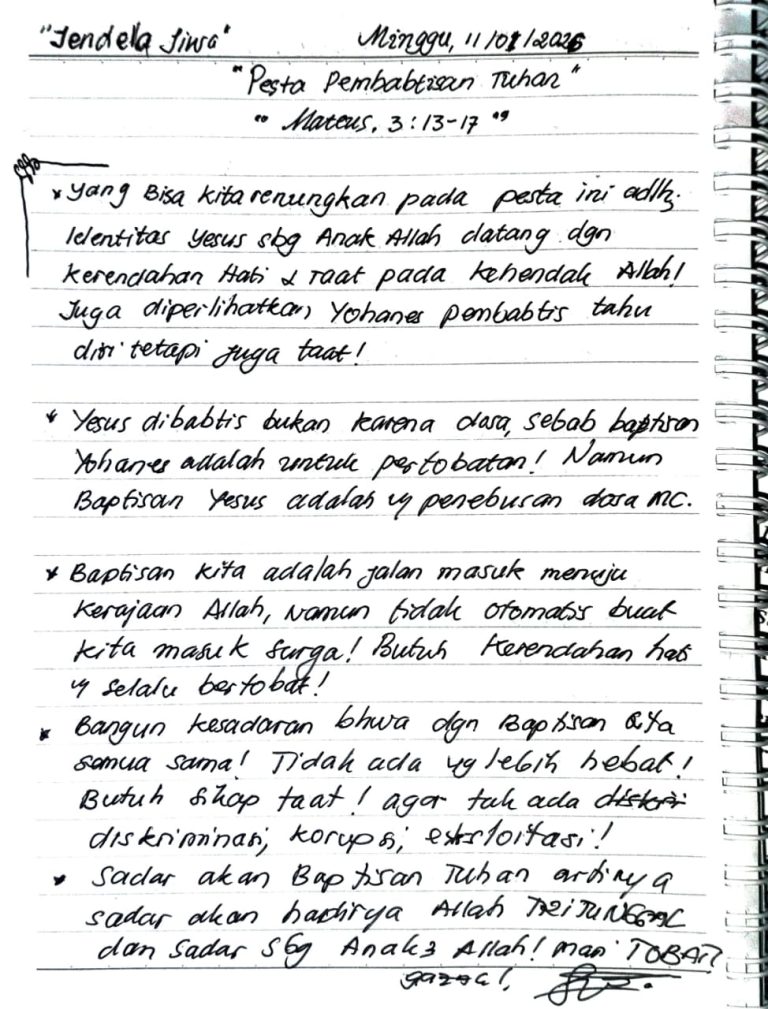 "Jendela Jiwa" Minggu, 11/01/2026
"Pesta Pembabtisan Tuhan"
"Mateus. 3:13-17"
* Yang Bisa kita renungkan pada pesta ini adlh.
Identitas Yesus sbg Anak Allah datang dgn
kerendahan Hati & Taat pada kehendak Allah!
Juga diperlihatkan Yohanes pembabtis tahu
diri tetapi juga taat!
* Yesus dibabtis bukan karena dosa, sebab baptisan
Yohanes adalah untuk pertobatan! Namun
Baptisan Yesus adalah u/ penebusan dosa mc.
* Baptisan kita adalah jalan masuk menuju
Kerajaan Allah, Namun tidak otomatis buat
kita masuk surga! Butuh Kerendahan hati
u/ selalu bertobat!
* Bangun kesadaran bhwa dgn Baptisan kita
semua sama! Tidak ada yg lebih hebat!
Butuh sikap taat! agar tak ada diskri
diskriminasi, korupsi, eksploitasi!
* Sadar akan Baptisan Tuhan artinya
sadar akan hadirnya Allah TRITUNGGAL
dan Sadar sbg Anak2 Allah! mari TOBAT!